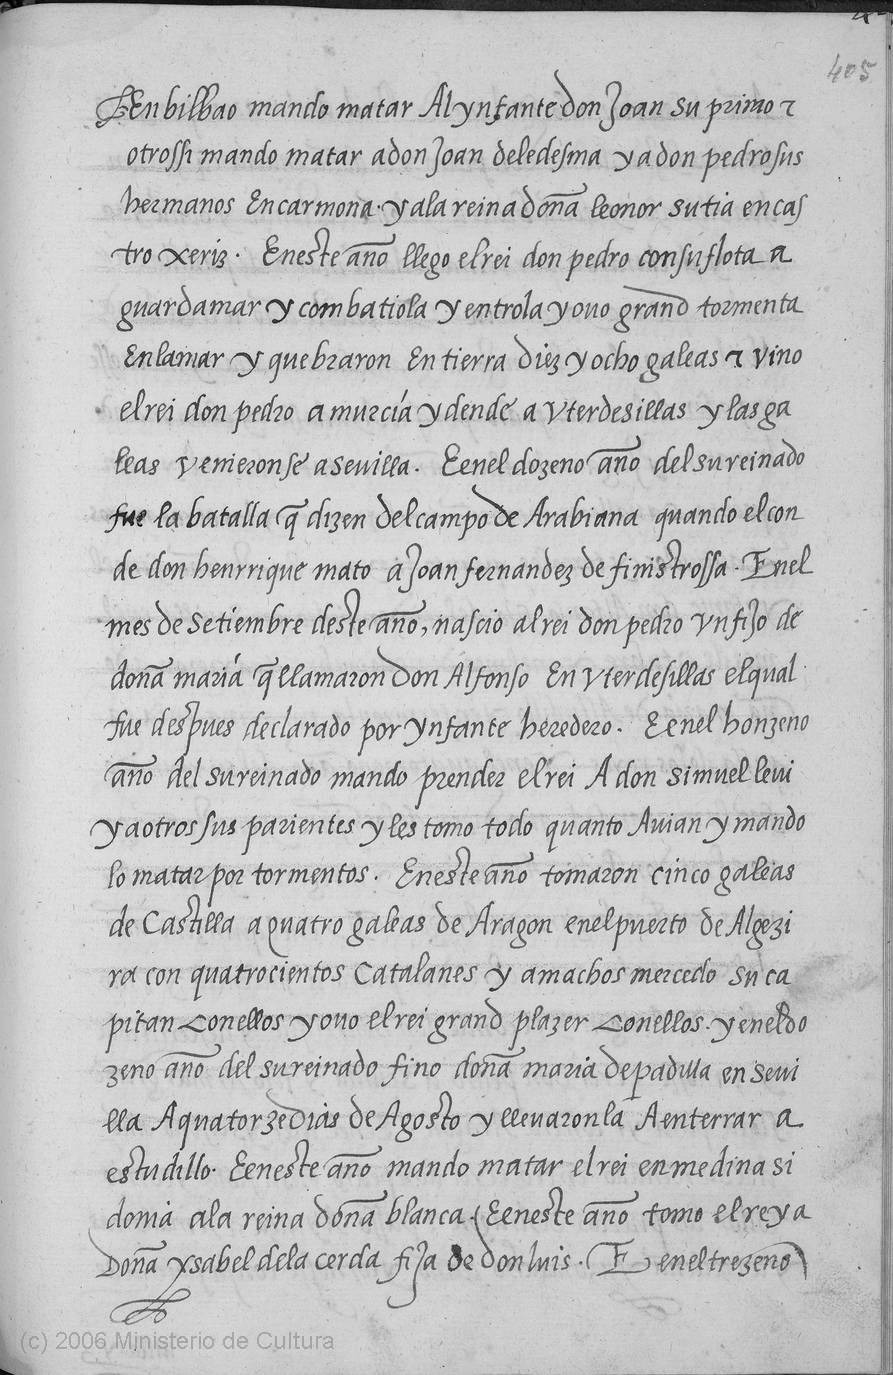 405
En bilbao mando matar Al ynfante don Joan su primo τ
otrossi mando matar a don Joan de ledesma y a don pedro sus
hermanos En carmona · y a la reina doña leonor su tia en cas
tro xeriz · En este año llego el rei don pedro con su flota a
guardamar y combatiola y entrola y ouo grand tormenta
En la mar y quebraron En tierra diez y ocho galeas τ vino
el rei don pedro a murcía y dende a vterdesillas y las ga
leas venieronse a seuilla · E en el dozeno año del su reinado
fue la batalla q̃ dizen del campo de Arabiana quando el con
de don henrrique mato a Joan fernandez de finistrossa · En el
mes de setiembre deste año, nascio al rei don pedro vn fijo de
doña maría q̃ llamaron Don Alfonso En vterdesillas el qual
fue despues declarado por ynfante heredero · E en el honzeno
año del su reinado mando prender el rei A don simuel leui
y a otros sus parientes y les tomo todo quanto Auian y mando
lo matar por tormentos · En este año tomaron cinco galeas
de Castilla a quatro galeas de Aragon en el puerto de Algezi
ra con quatrocientos Catalanes y a machos mercedo su ca
pitan Con ellos y ouo el rei grand plazer Con ellos · y en el do
zeno año del su reinado fino doña maria de padilla en seui
lla A quatorze Dias de Agosto y lleuaron la A enterrar a
estudillo · E en este año mando matar el rei en medina si
donia a la reina doña blanca · E en este año tomo el rey a
Doña ysabel de la cerda fija de don luis · E en el trezeno
(c) 2006 Ministerio de Cultura